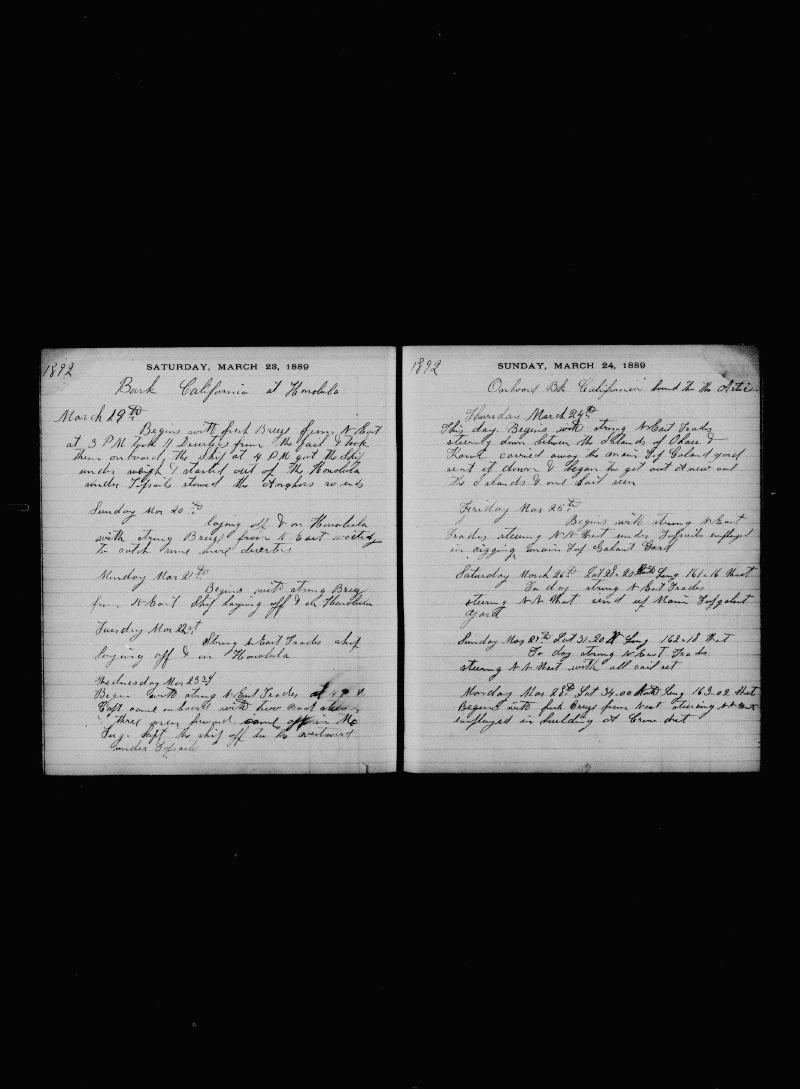 1892
SATURDAY, MARCH 23, 1889
Bark California at Honolulu
March 19th
Begins with fresh Breeze from N East
at 3 PM took 4 Deserters from the jail & took
them onboard the Ship at 4 PM got the Ship
under weigh & started out of the Honolulu
under Topsails stowed the Anchors so ends
Sunday Mar 20th
laying off & on Honolulu
with strong Breeze from N East waiting
to catch some more deserters
Monday Mar 21th
Begins with strong Breeze
from N East Ship laying off & on Honolulu
Tuesday Mar 22st
Strong N East Trades ship
laying off & on Honolulu
Wednesday Mar 23rd
Begins with strong N East Trades at 4 P M
Capt came onboard with two Boat
three green came off in the
Tug kept the ship off to the westward
under Topsails
1892
SUNDAY, MARCH 24, 1889
Onboard Bk California bound to the Artic
Thursday March 24th
This day Begins with strong N East Trades
steering down between the Islands of Ohau &
carried away the main Top Galand yard
sent it down & began to get out a new one
the Islands & one Sail seen
Friday Mar 25th
Begins with strong N East
Trades steering N N West under Topsails employed
in rigging main Top Galant Yard
Saturday March 26th Lat 28-20 North Long 161-16 West
To day strong N East Trades
steering N N West send up Main Topgalant
Yard
Sunday Mar 27th Lat 31-20 N Long 162-18 West
To day strong N East Trades
steering N N West with all sail set
Monday Mar 28th Lat 34-00 North Long 163-02 West
Begins with fresh Breeze from West steering N N West
employed in building a Crows Nest